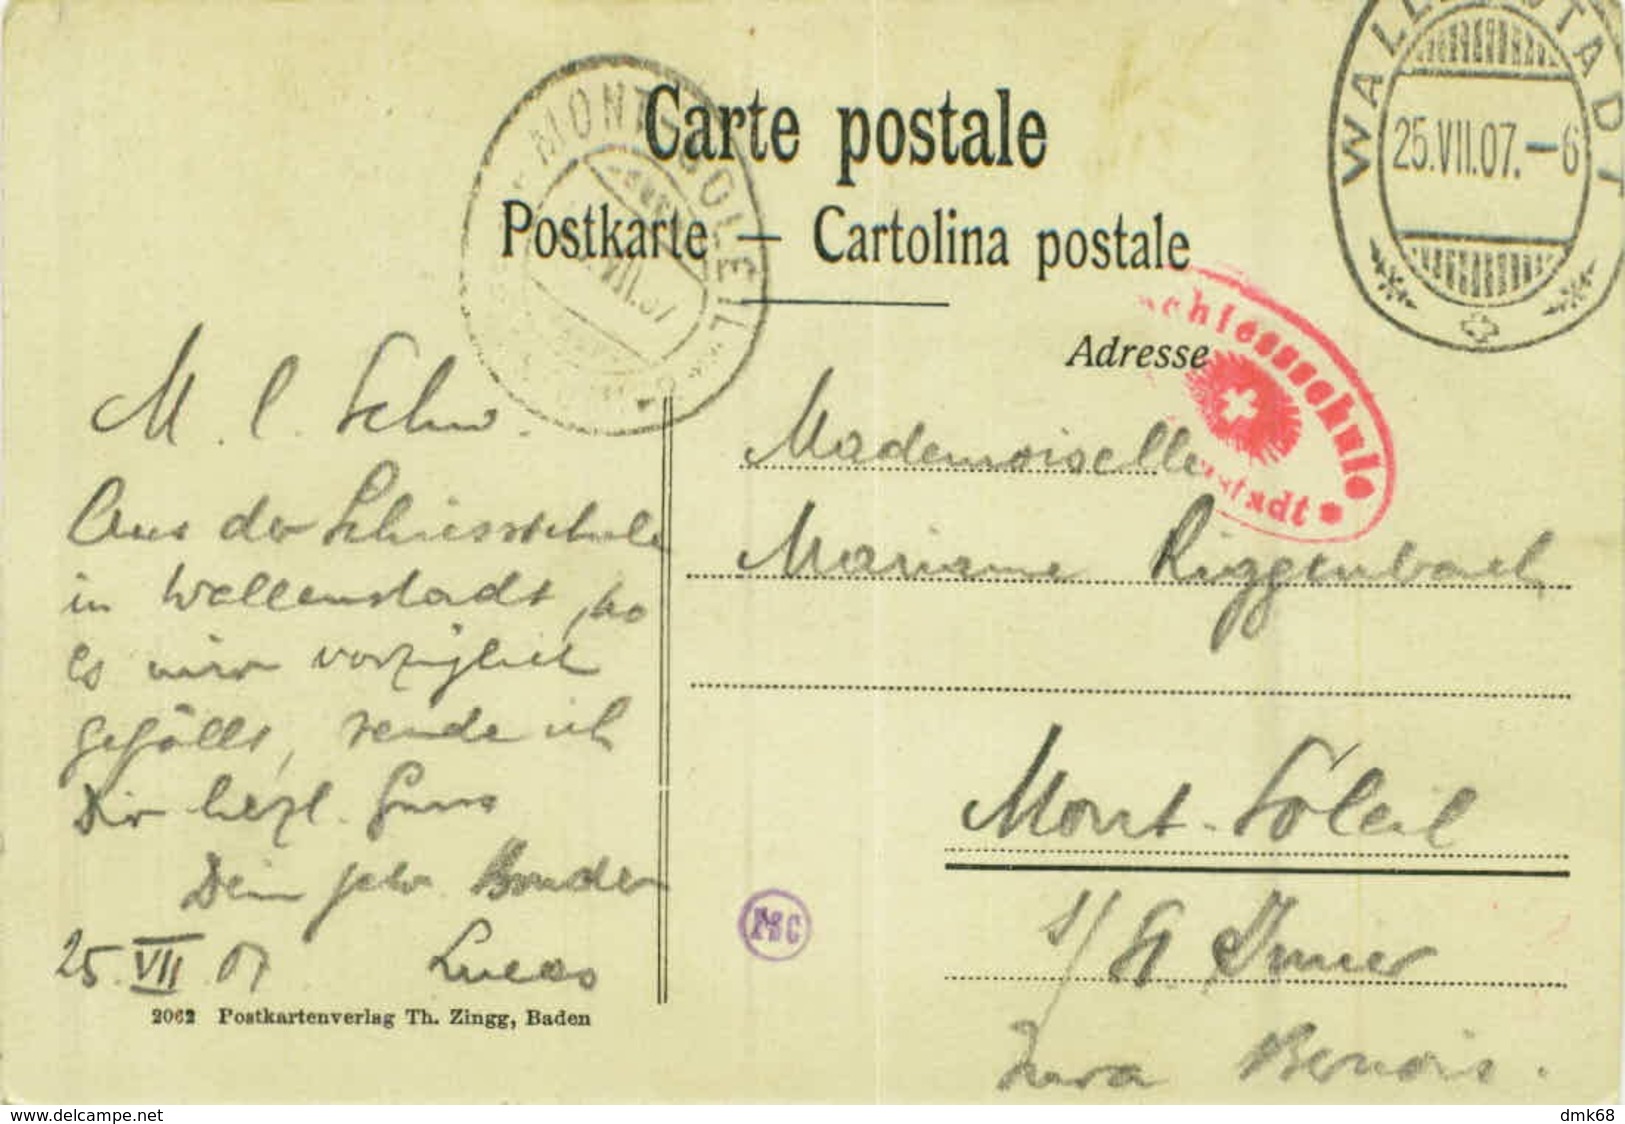 Carte postale
Postkarte — Cartolina postale
Adresse
MONT-SOLEIL
VII.07
WALLENSTADT
25.VII.07.–6
Schiessschule
stadt *
M. l. Schw.
Aus der Schiessschule
in Wallenstadt, wo
es mir vorzüglich
gefällt, sende ich
Dir herzl. Gruss
Dein getr. Bruder
25. VII. 07 Lucas
Mademoiselle
Marianne Riggenbach
Mont-Soleil
s/ St. Immer
Jura Bernois.
2062 Postkartenverlag Th. Zingg, Baden
www.delcampe.net
dmk68